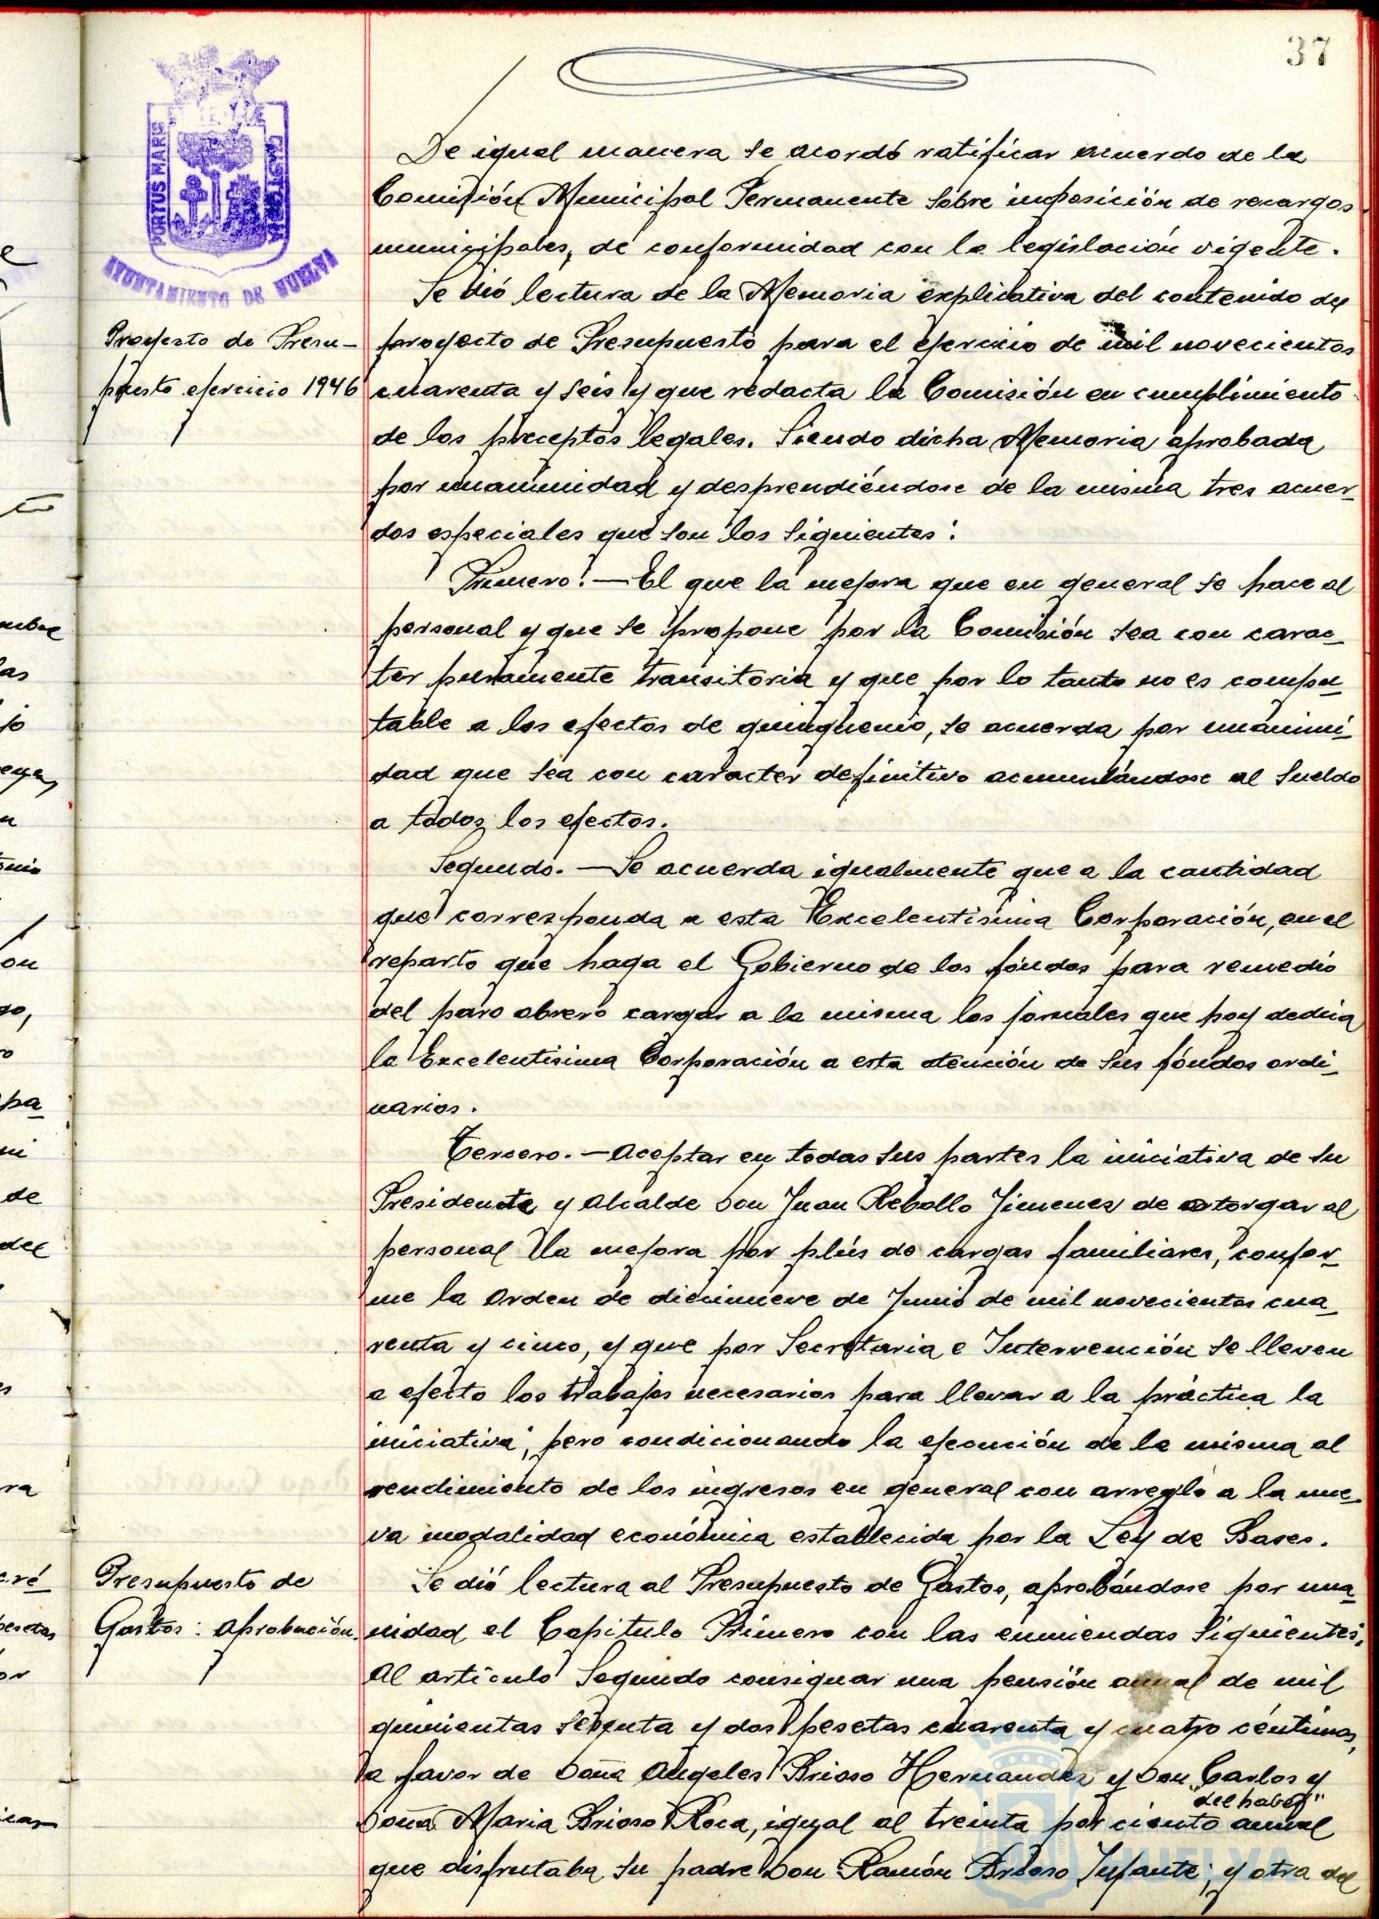 37
PORTUS MARIS
CUSTODIA
AYUNTAMIENTO DE HUELVA
De igual manera se acordó ratificar acuerdo de la
Comisión Municipal Permanente sobre imposición de recargos
municipales, de conformidad con la legislación vigente.
Se dió lectura de la Memoria explicativa del contenido del
Proyecto de Presu-
puesto ejercicio 1946
proyecto de Presupuesto para el ejercicio de mil novecientos
cuarenta y seis y que redacta la Comisión en cumplimiento
de los preceptos legales. Siendo dicha Memoria aprobada
por unanimidad y desprendiéndose de la misma tres acuer-
dos especiales que son los siguientes:
Primero.—El que la mejora que en general se hace al
personal y que se propone por la Comisión sea con carac-
ter puramente transitoria y que por lo tanto no es compu-
table a los efectos de quinquenio, se acuerda por unanimi-
dad que sea con caracter definitivo acumulándose al sueldo
a todos los efectos.
Segundo.—Se acuerda igualmente que a la cantidad
que corresponda a esta Excelentísima Corporación, en el
reparto que haga el Gobierno de los fondos para remedio
del paro obrero cargar a la misma los jornales que hoy dedica
la Excelentisima Corporación a esta atención de sus fóndos ordi-
narios.
Tercero.—Aceptar en todas sus partes la iniciativa de su
Presidente y Alcalde Don Juan Rebollo Jimenez de otorgar al
personal la mejora por plús de cargas familiares, confor-
me la Orden de diecinueve de Junio de mil novecientos cua-
renta y cinco, y que por Secretaria e Intervención se lleven
a efecto los trabajos necesarios para llevar a la práctica la
iniciativa, pero condicionando la ejecución de la misma al
rendimiento de los ingresos en general con arreglo a la nue-
va modalidad económica establecida por la Ley de Bases.
Presupuesto de
Gastos: aprobación.
Se dió lectura al Presupuesto de Gastos, aprobándose por una-
nidad el Capitulo Primero con las enmiendas siguientes:
Al artículo Segundo consignar una pensión anual de mil
quinientas y dos pesetas cuarenta y cuatro céntimos,
a favor de Doña Angeles Brioso Hernandez y Don Carlos y
"del haber"
Doña Maria Brioso Roca, igual al treinta por ciento anual
que disfrutaba su padre Don Ramón Brioso Infante; y otra del